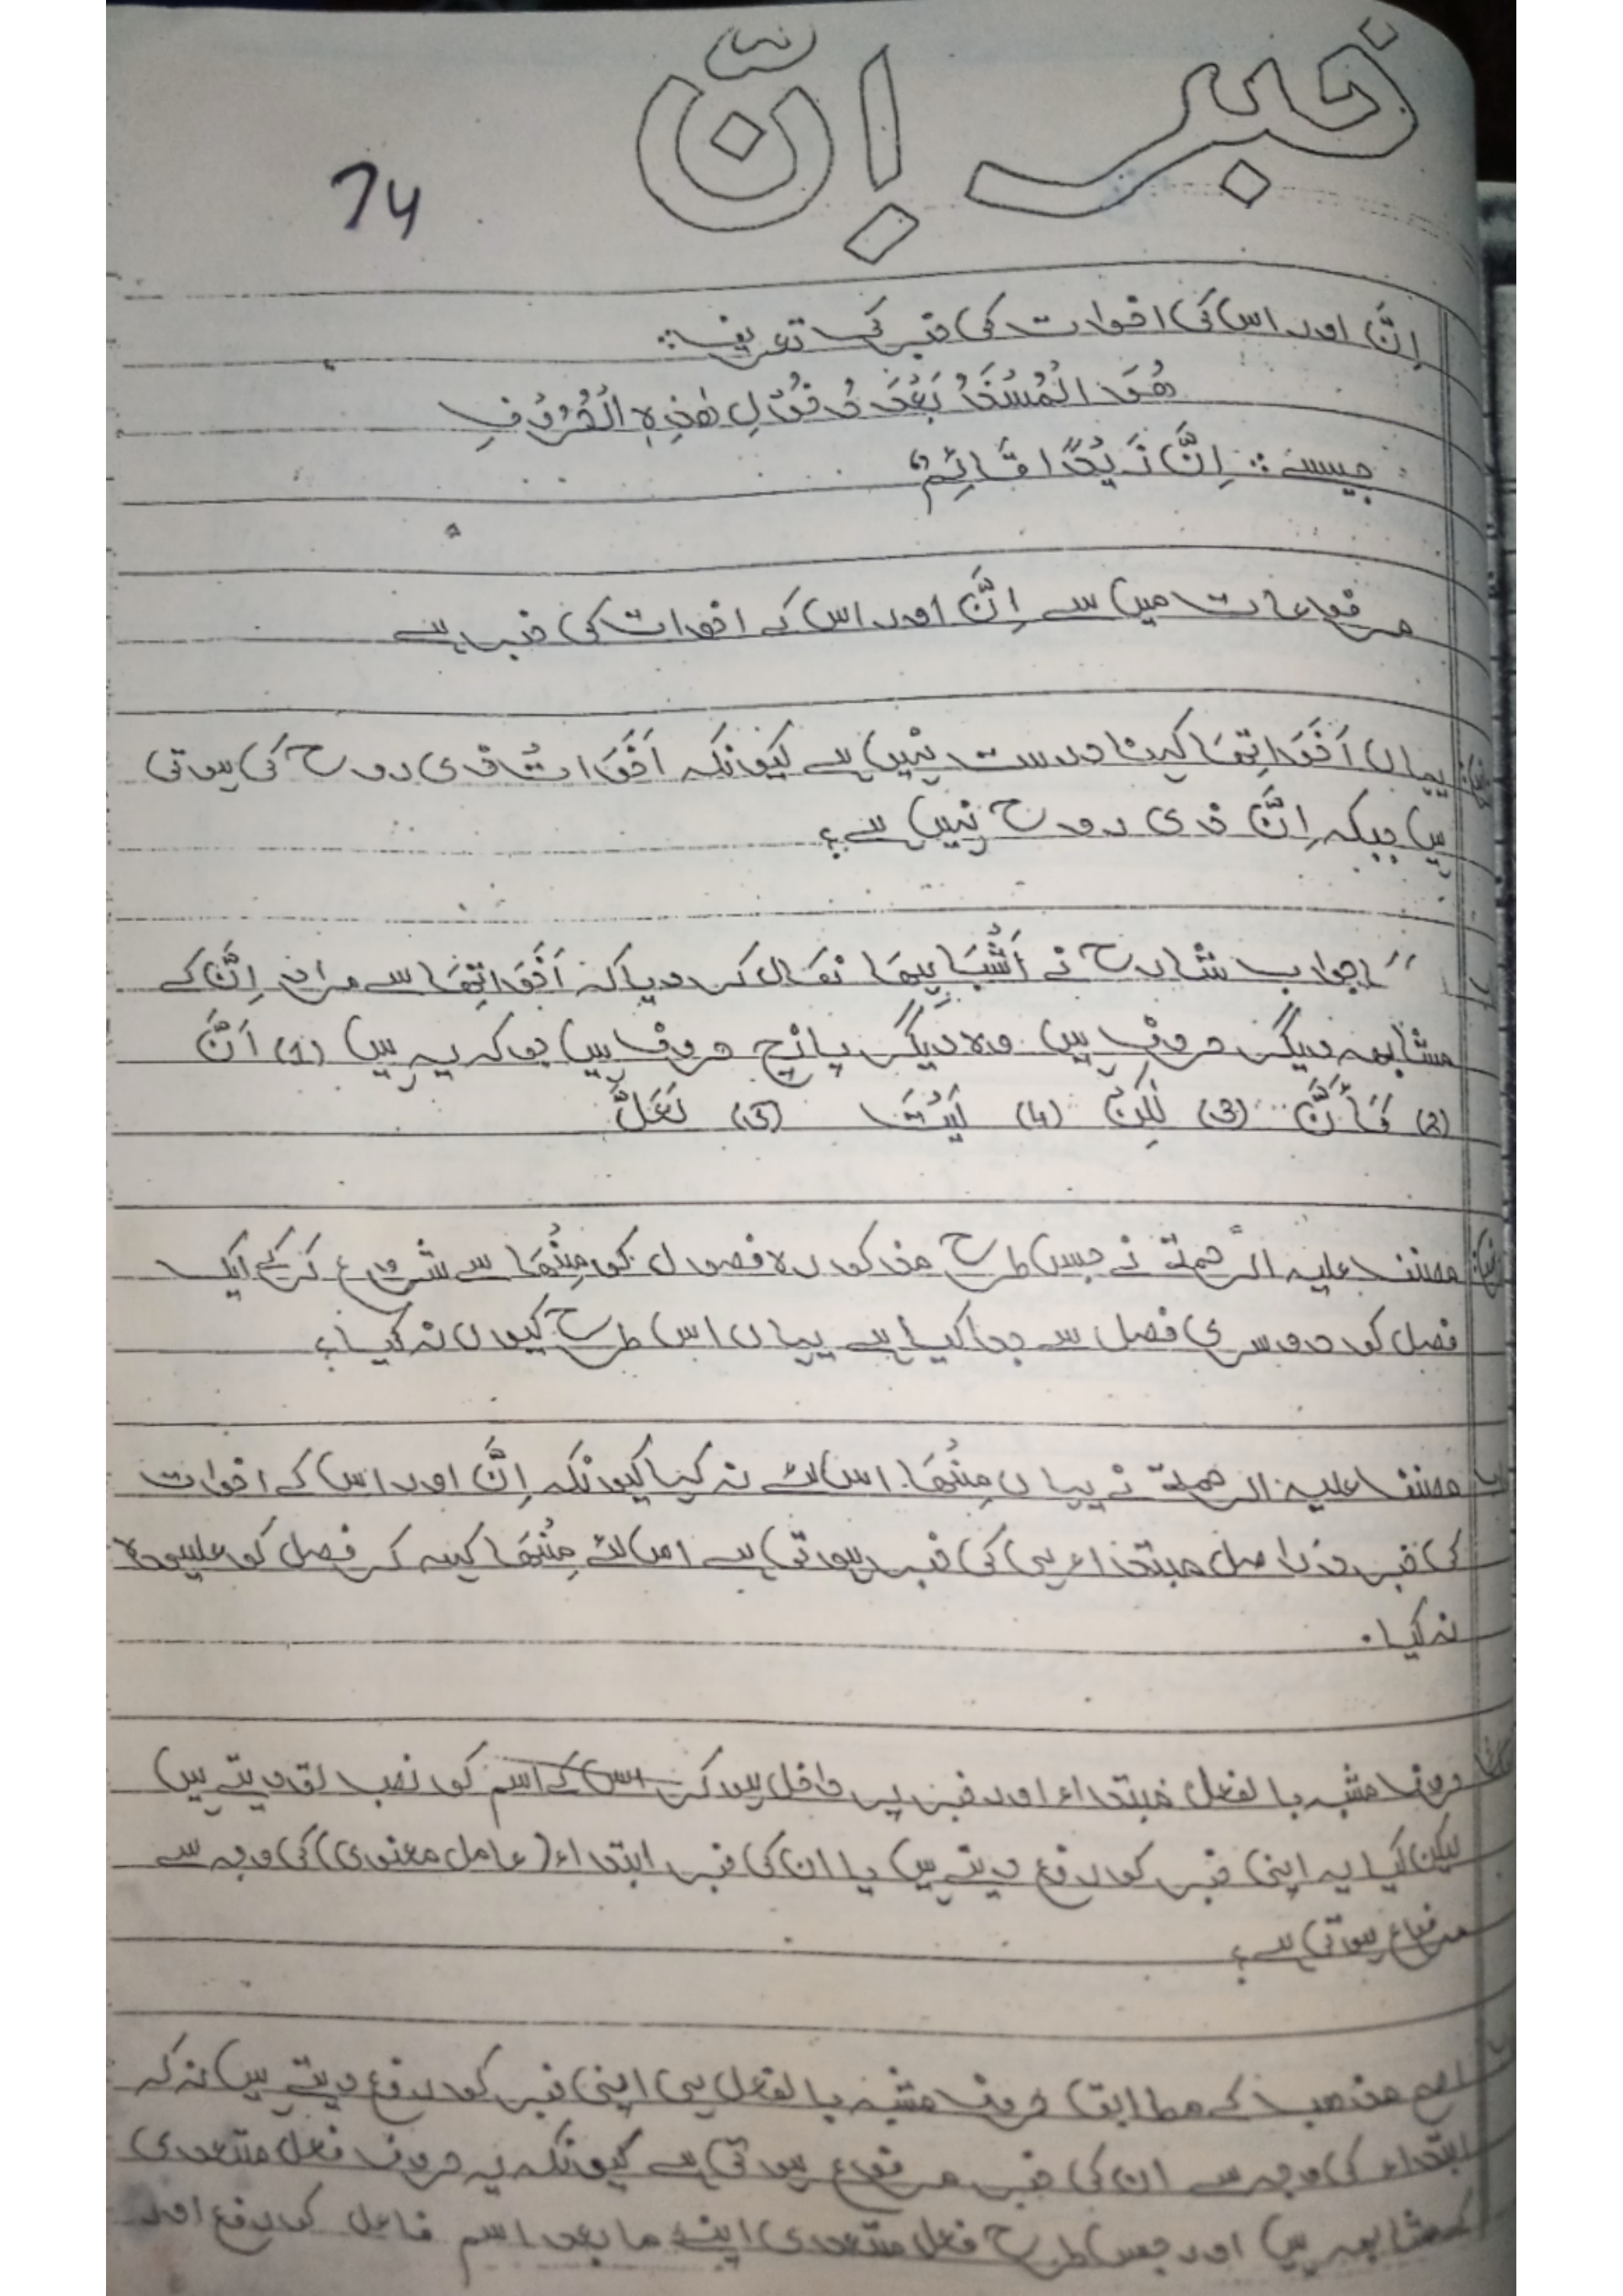 خبر اِنّ
74
اِنَّ اور اس کی اخوات کی خبر کی تعریف:
هُوَ الْمُسْنَدُ بَعْدَ دُخُوْلِ هٰذِهِ الْحُرُوْفِ
جیسے: اِنَّ زَيْدًا قَائِمٌ
مرفوعات میں سے اِنَّ اور اس کے اخوات کی خبر ہے
یہاں اَخَوَاتِهَا کہنا درست نہیں ہے کیونکہ اَخَوَاتْ ذی روح کی ہوتی
ہیں جبکہ اِنَّ ذی روح نہیں ہے؟
جواب شارح نے اَشْبَاهِهَا نکال کر دیا کہ اَخَوَاتِهَا سے مراد اِنَّ کے
مشابھہ دیگر حروف ہیں وہ دیگر پانچ حروف ہیں جو کہ یہ ہیں (1) اَنَّ
(2) كَأَنَّ (3) لٰكِنَّ (4) لَيْتَ (5) لَعَلَّ
مصنف علیہ الرحمۃ نے جس طرح مذکورہ فصول کو مِنْهَا سے شروع کر کے ایک
فصل کو دوسری فصل سے جدا کیا ہے یہاں اس طرح کیوں نہ کیا؟
مصنف علیہ الرحمۃ نے یہاں مِنْهَا اس لئے نہ کہا کیونکہ اِنَّ اور اس کے اخوات
کی خبر در اصل مبتداء ہی کی خبر ہوتی ہے اس لئے مِنْهَا کہہ کر فصل کو علیحدہ
نہ کیا.
حروف مشبہ بالفعل مبتداء اور خبر پر داخل ہو کر اس کے اسم کو نصب تو دیتے ہیں
لیکن کیا یہ اپنی خبر کو رفع دیتے ہیں یا ان کی خبر ابتداء (عامل معنوی) کی وجہ سے
مرفوع ہوتی ہے؟
اصح مذھب کے مطابق حروف مشبہ بالفعل ہی اپنی خبر کو رفع دیتے ہیں نہ کہ
ابتداء کی وجہ سے ان کی خبر مرفوع ہوتی ہے کیونکہ یہ حروف فعل متعدی
کے مشابھہ ہیں اور جس طرح فعل متعدی اپنے ما بعد اسم فاعل کو رفع اور